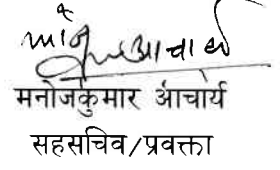 मनोजकुमार आचार्य
सहसचिव/प्रवक्ता